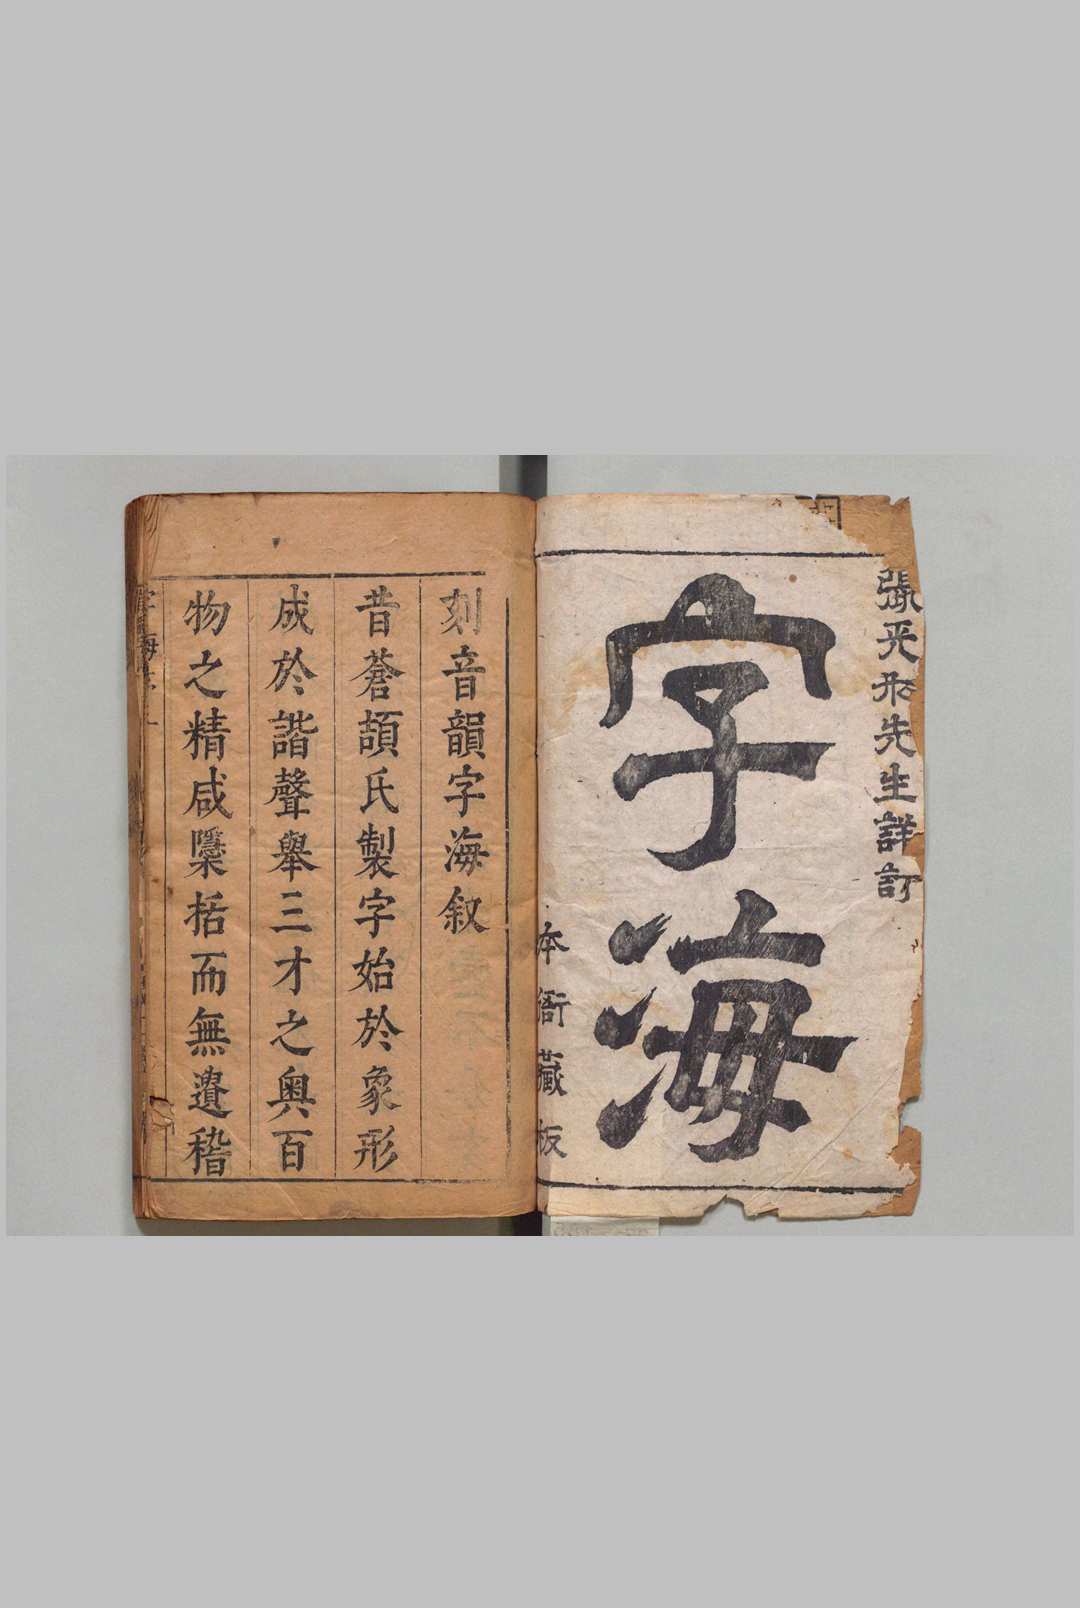 張天如先生詳訂
字海
本衙藏板
刻音韻字海叙
昔蒼頡氏製字始於象形
成於諧聲舉三才之奧百
物之精咸檃括而無遺稽